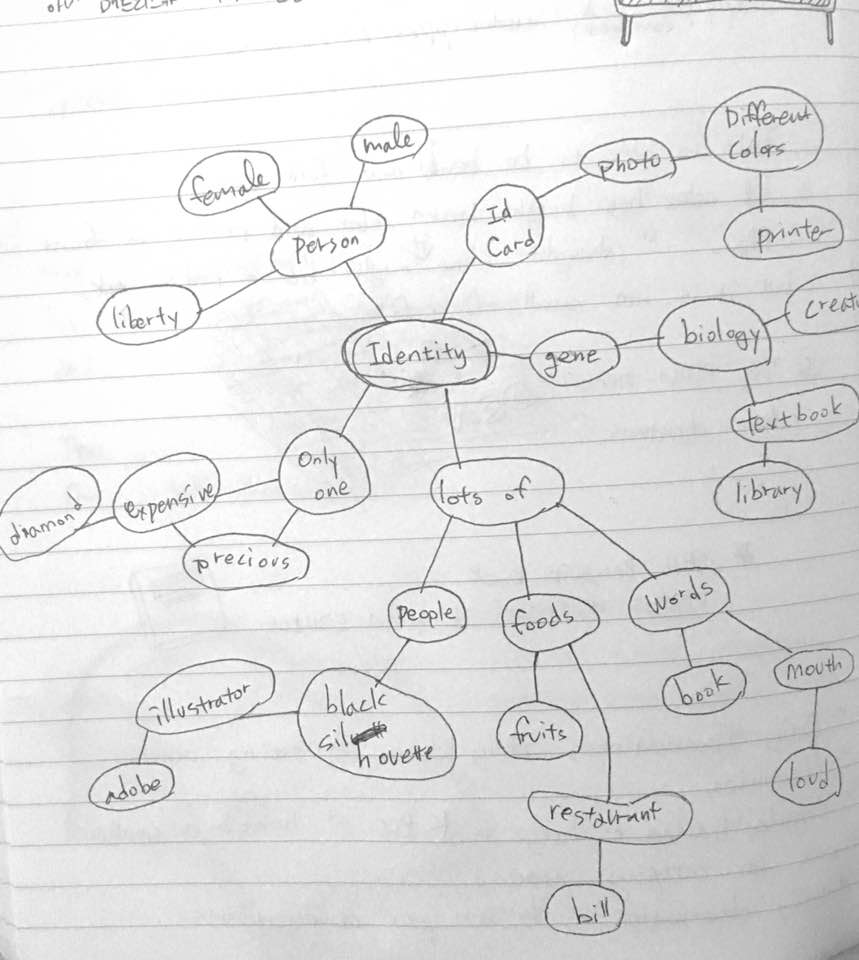 male
female
person
liberty
Id
Card
photo
Different
Colors
printer
Identity
gene
biology
textbook
library
Only
one
expensive
diamond
precious
lots of
people
foods
words
black
silhovette
illustrator
adobe
fruits
book
mouth
loud
restaurant
bill